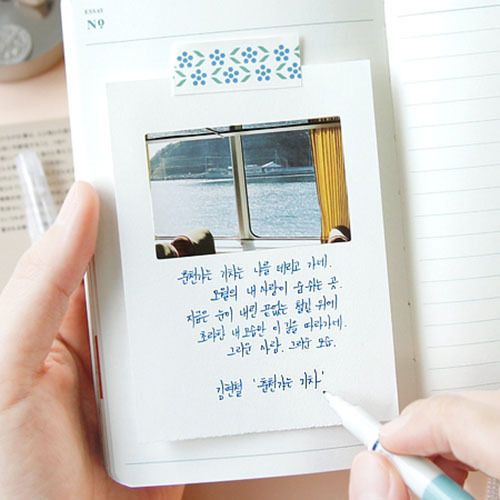 ESSAY
Nº
춘천가는 기차는 나를 데리고 가네.
오월의 내 사랑이 숨쉬는 곳.
지금은 눈이 내린 끝없는 철길 위에
초라한 내 모습만 이 길을 따라가네.
그리운 사람. 그리운 모습.
김현철 '춘천가는 기차'